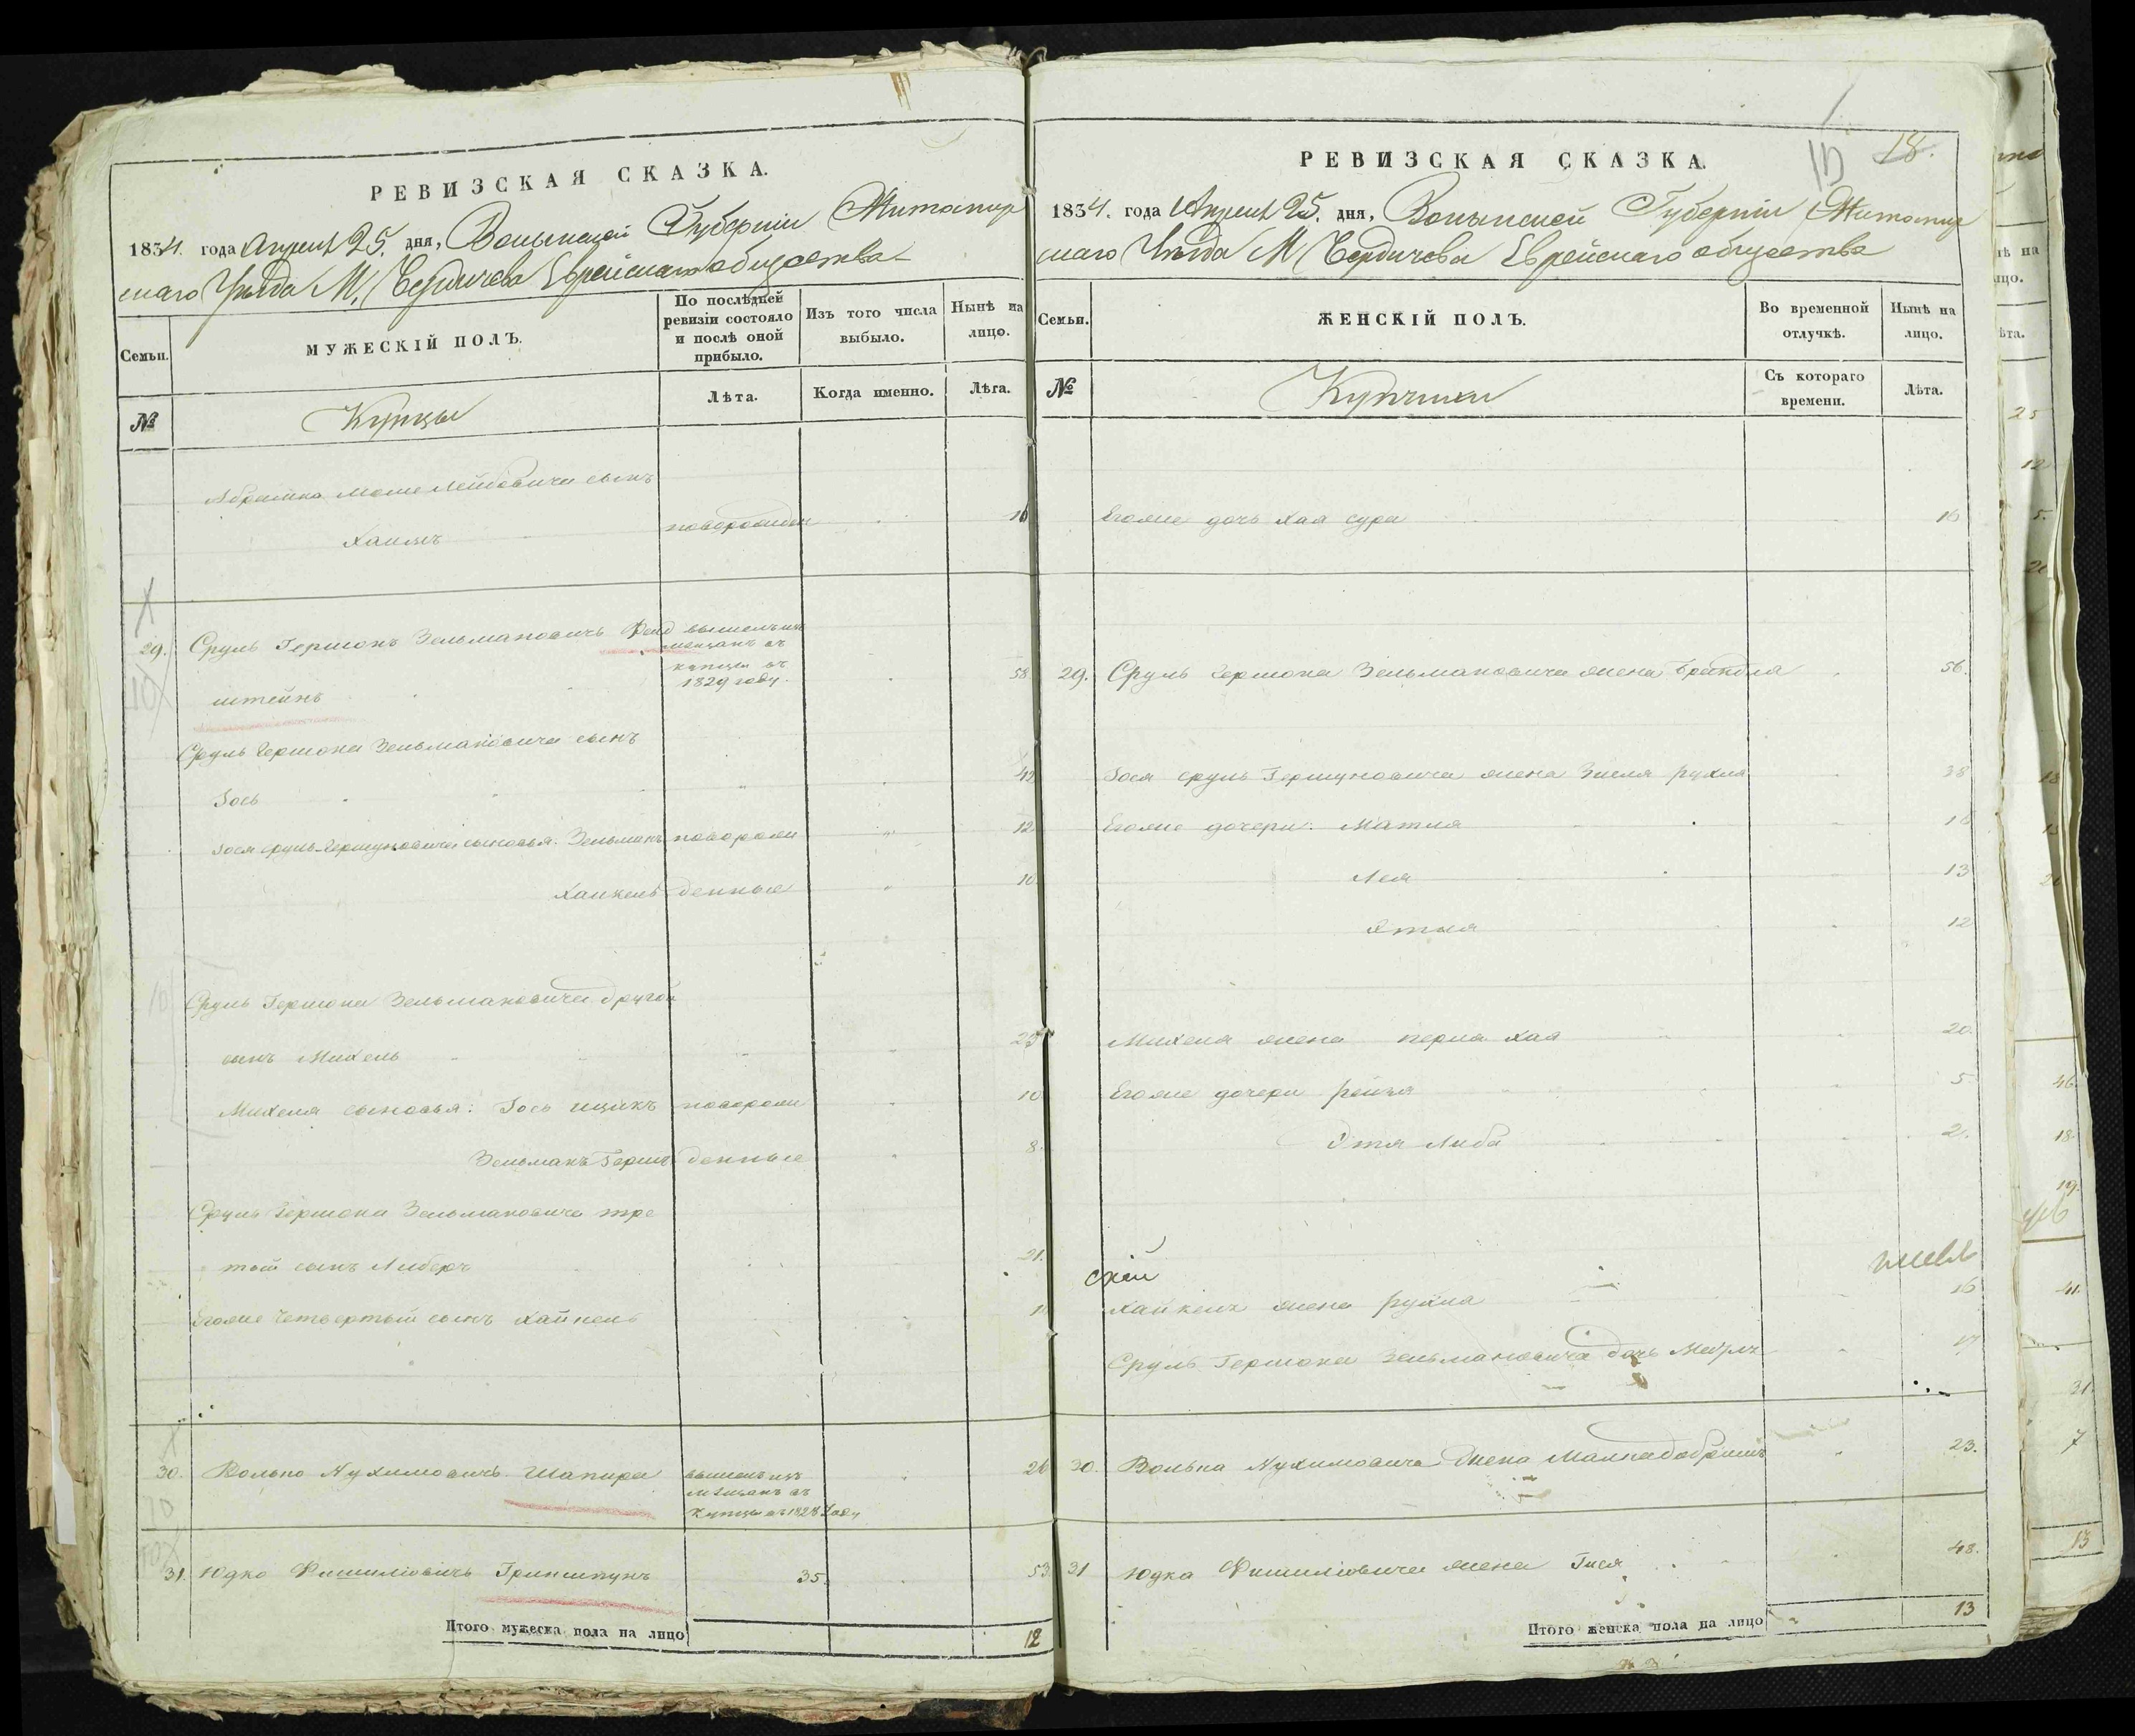 РЕВИЗСКАЯ СКАЗКА.
1834. года Апреля 25. дня, Волынской Губерніи Житомир
скаго Уѣзда М. Бердичева Еврейскаго общества
Семьи.
МУЖЕСКІЙ ПОЛЪ.
По послѣдней ревизіи состояло и послѣ оной прибыло.
Изъ того числа выбыло.
Нынѣ на лицо.
№
Купцы
Лѣта.
Когда именно.
Лѣта.
Абрамка Моше Лейбовича сынъ
Хаимъ новорожден
29. Сруль Гершонъ Зельмановичъ Фенд вышелъ изъ
мещанъ въ
купцы въ
1829 году.
штейнъ 58
Сруль Гершона Зельмановича сынъ
Іось 42
Іося Сруль Гершуновича сыновья: Зельманъ новорож 12
Хайкель денные 10.
Сруль Гершона Зельмановича другой
сынъ Михель 25
Михеля сыновья: Іось Ицикъ новорож 10
Зельманъ Гершъ денные 8.
Сруль Гершона Зельмановича тре
тій сынъ Либеръ 21.
Егоже четвертый сынъ Хайкель
30. Волько Нухимовичъ Шапира вышелъ изъ 26
мещанъ въ
купцы въ 1828 году
31. Юдко Фишиліовичъ Гриншпунъ 35. 53
Итого мужеска пола на лицо 12
РЕВИЗСКАЯ СКАЗКА.
18.
1834. года Апреля 25. дня, Волынской Губерніи Житомир
скаго Уѣзда М Бердичева Еврейскаго общества
Семьи.
ЖЕНСКІЙ ПОЛЪ.
Во временной отлучкѣ.
Нынѣ на лицо.
№
Купчихи
Съ котораго времени.
Лѣта.
Егоже дочь Хая Сура 16
29. Сруль Гершона Зельмановича жена Брайндля 56.
Іося Сруль Гершуновича жена Зисля Рухля 38
Егоже дочери: Матля 16
Лея 13
Этля 12
Михеля жена Перла Хая 20.
Егоже дочери Рейзя 5
Этя Либа 2.
Хайкеля жена Рухла 16
Сруль Гершона Зельмановича дочь 17
30. Волька Нухимовича жена 23.
31 Юдка Фишиліовича жена Гися 48.
Итого женска пола на лицо 13